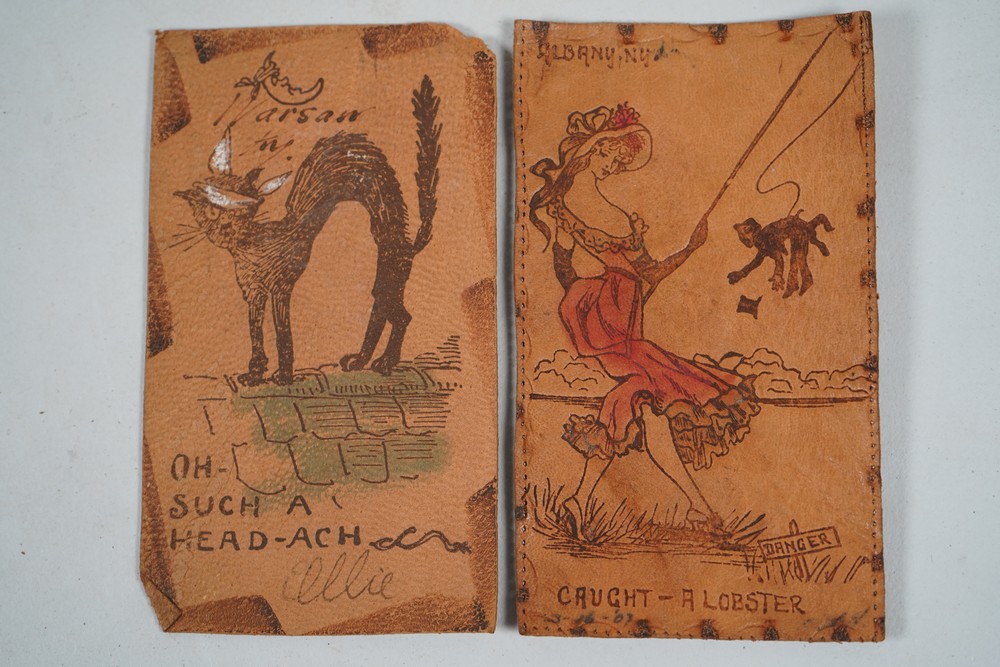 Warsaw
OH-
SUCH A
HEAD-ACH
Ellie
ALBANY, NY
DANGER
CAUGHT - A LOBSTER